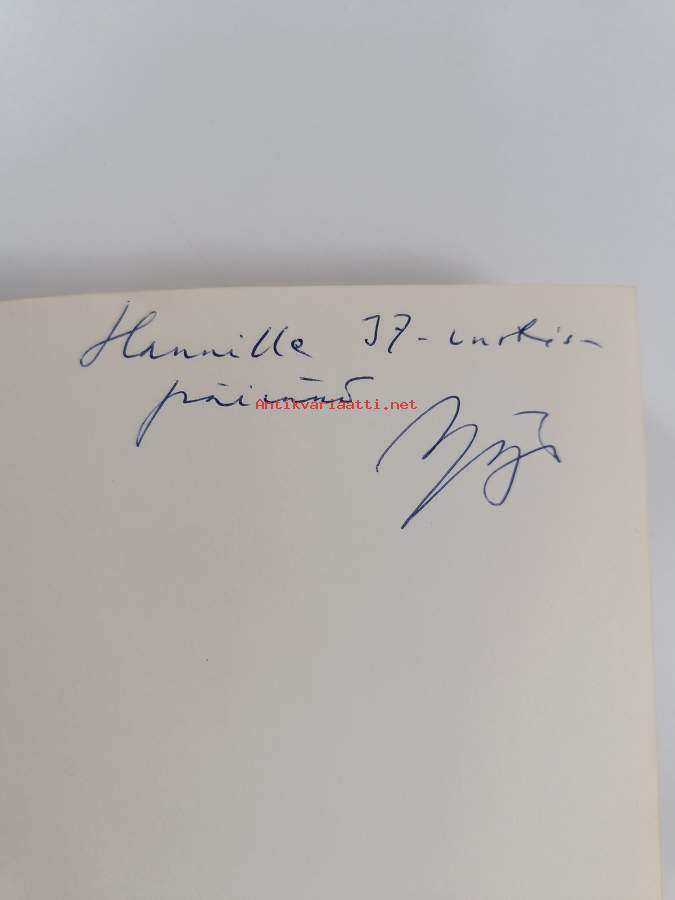 Hannille 37-vuotis-
päivänä
Antikvariaatti.net
Yrjö